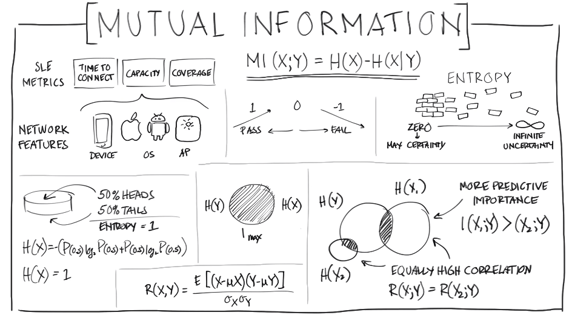 MUTUAL INFORMATION
SLE
METRICS
TIME TO
CONNECT
CAPACITY
COVERAGE
NETWORK
FEATURES
DEVICE
OS
AP
MI(X;Y) = H(X)-H(X|Y)
1 0 -1
PASS FAIL
ENTROPY
ZERO
MAX CERTAINTY
INFINITE
UNCERTAINTY
50% HEADS
50% TAILS
ENTROPY = 1
H(X)=-(P(0.5)log₂P(0.5)+P(0.5)log₂P(0.5))
H(X) = 1
H(Y) H(X)
I max
R(X,Y) = E[(X-μX)(Y-μY)] / σXσY
H(Y)
H(X,)
H(X₂)
MORE PREDICTIVE
IMPORTANCE
I(X,;Y) > (X₂;Y)
EQUALLY HIGH CORRELATION
R(X,;Y) = R(X₂;Y)